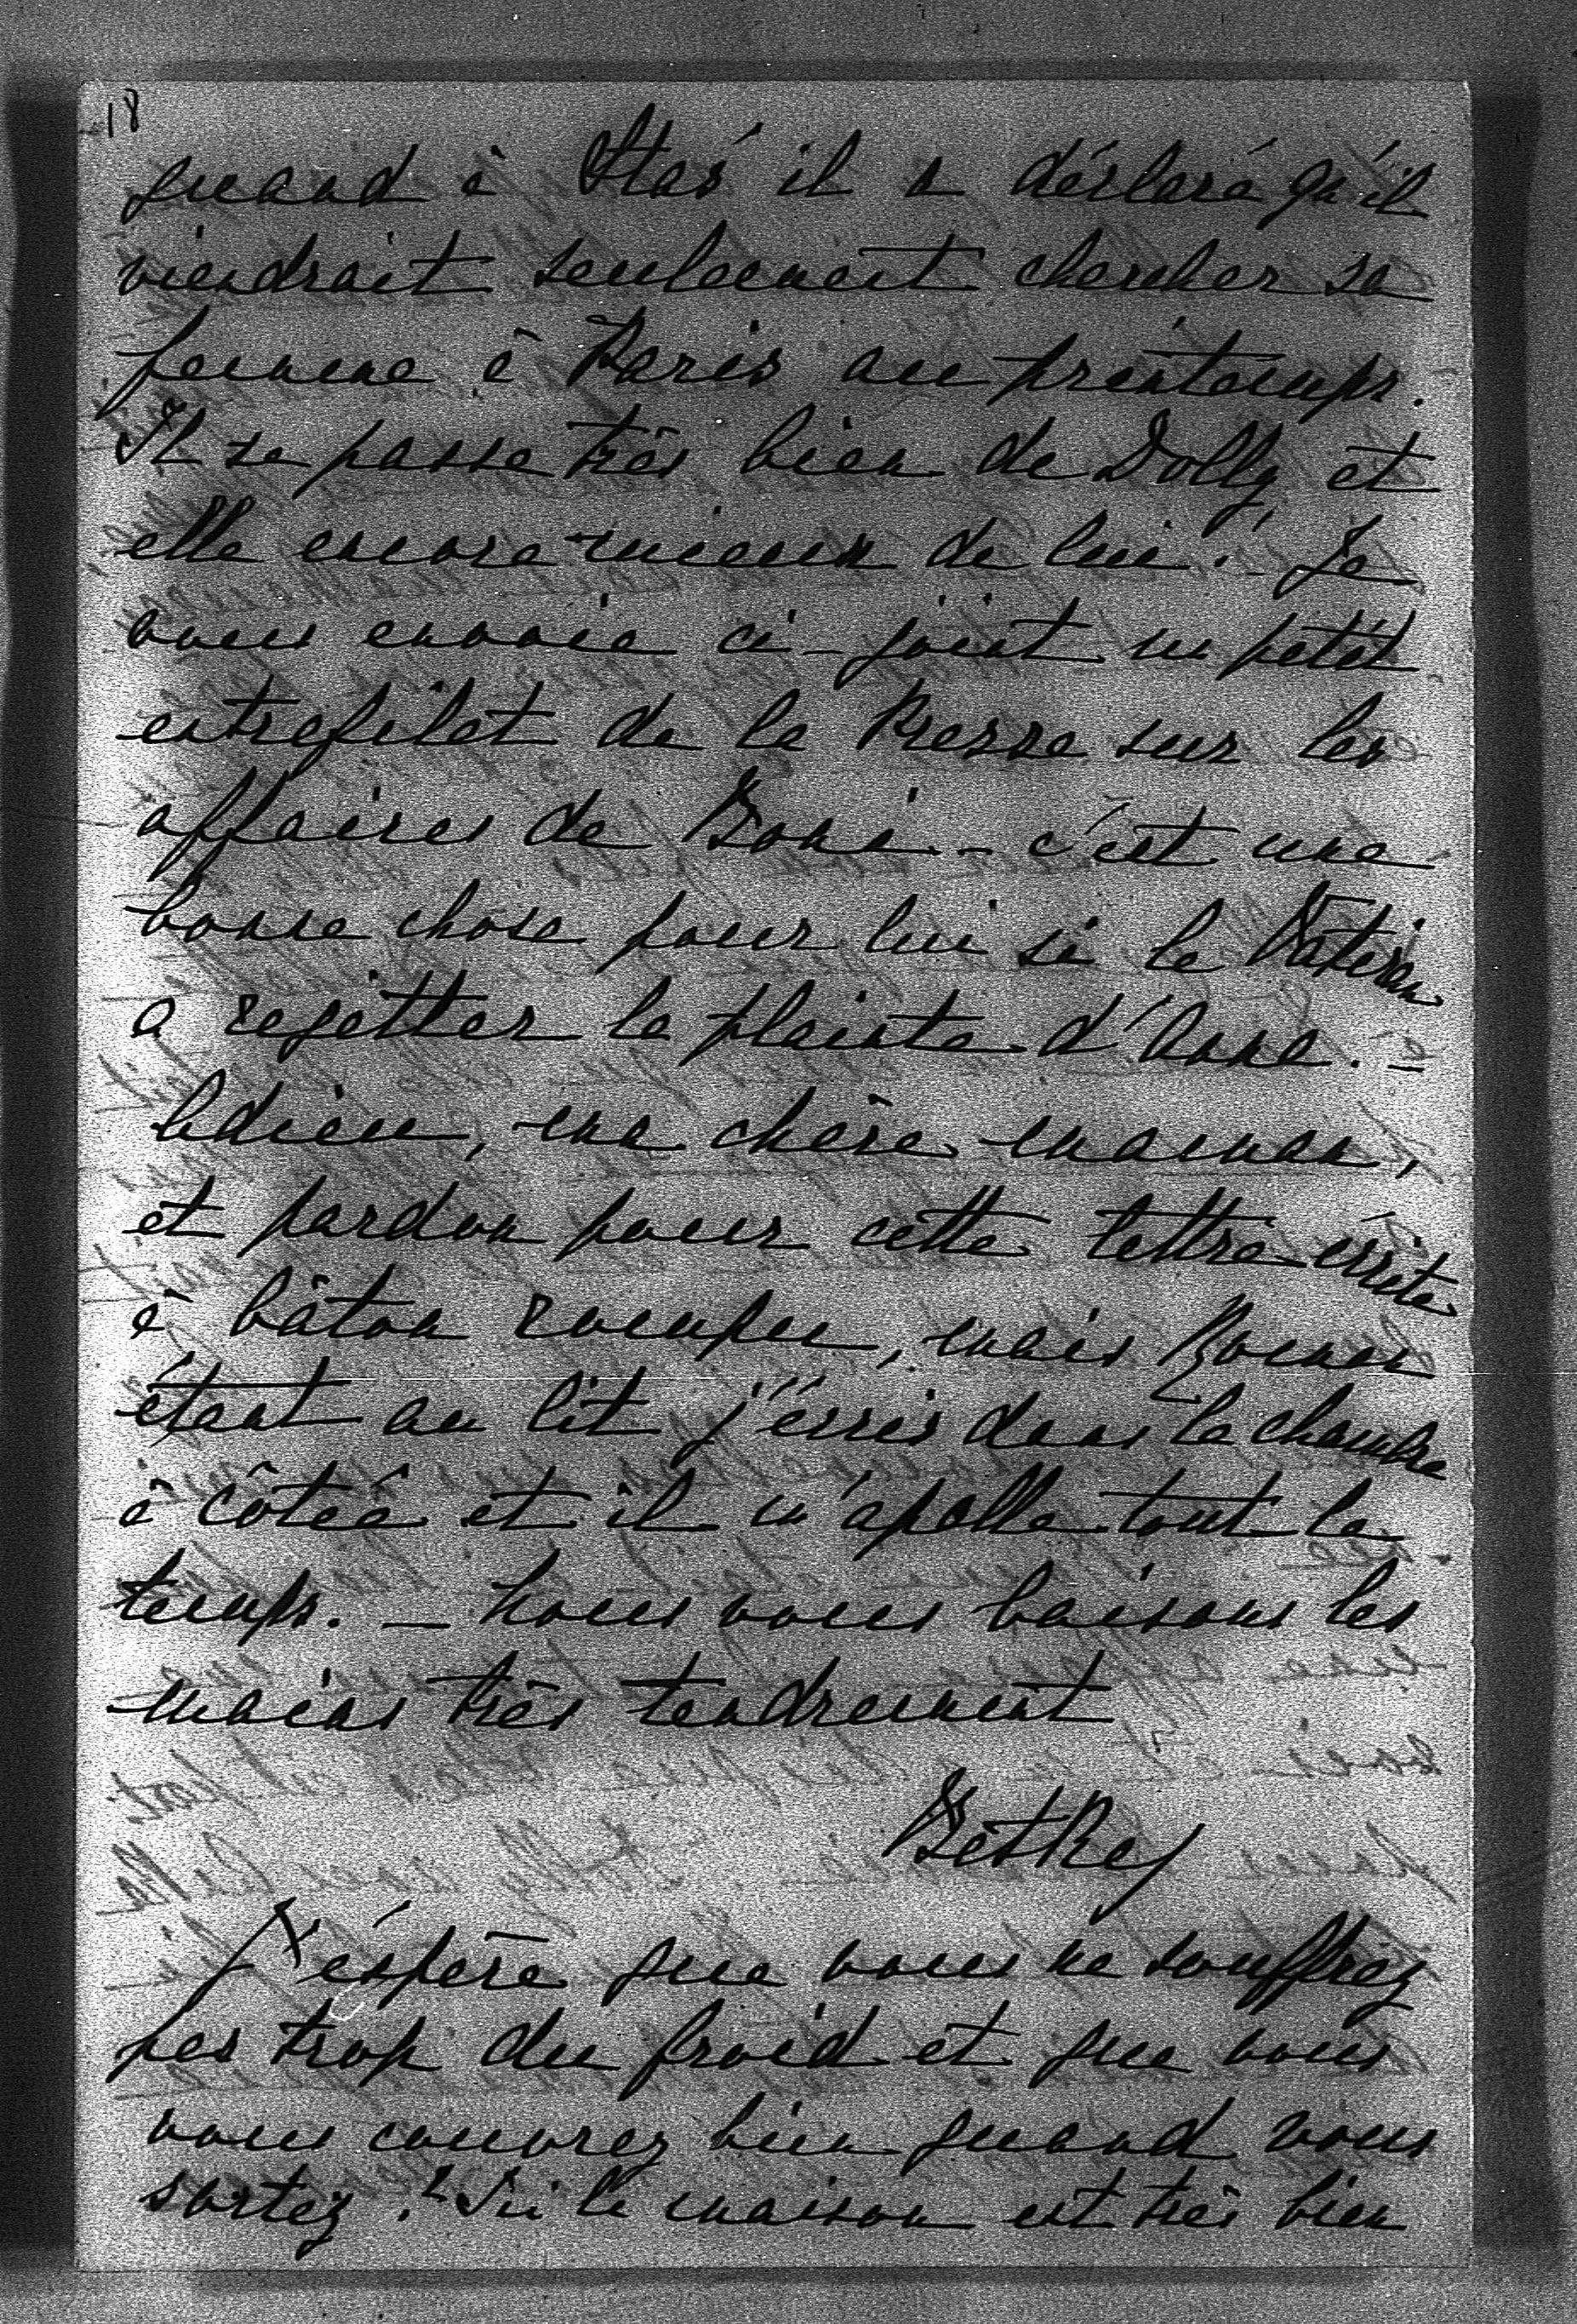 18
quand à Stas' il a déclaré qu'il
viendrait seulement chercher sa
femme à Paris au printemps.
Il se passe très bien de Dolly, et
elle encore mieux de lui! Je
vous envoie ci-joint un petit
entrefilet de la Presse sur les
affaires de Boni - c'est une
bonne chose pour lui si le Vatican
a rejetter la plainte d'Anna. =
Adieu, ma chère maman,
et pardon pour cette lettre écrite
à bâton rompu, mais Roman
étant au lit j'écris dans la chambre
à côtée et il m'apelle tout le
temps. — Nous vous baisons les
mains très tendrement
Betka
J'éspère que vous ne souffrez
pas trop du froid et que vous
vous couvrez bien quand vous
sortez? Ici la maison est très bien